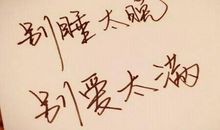 别睡太晚
别爱太满